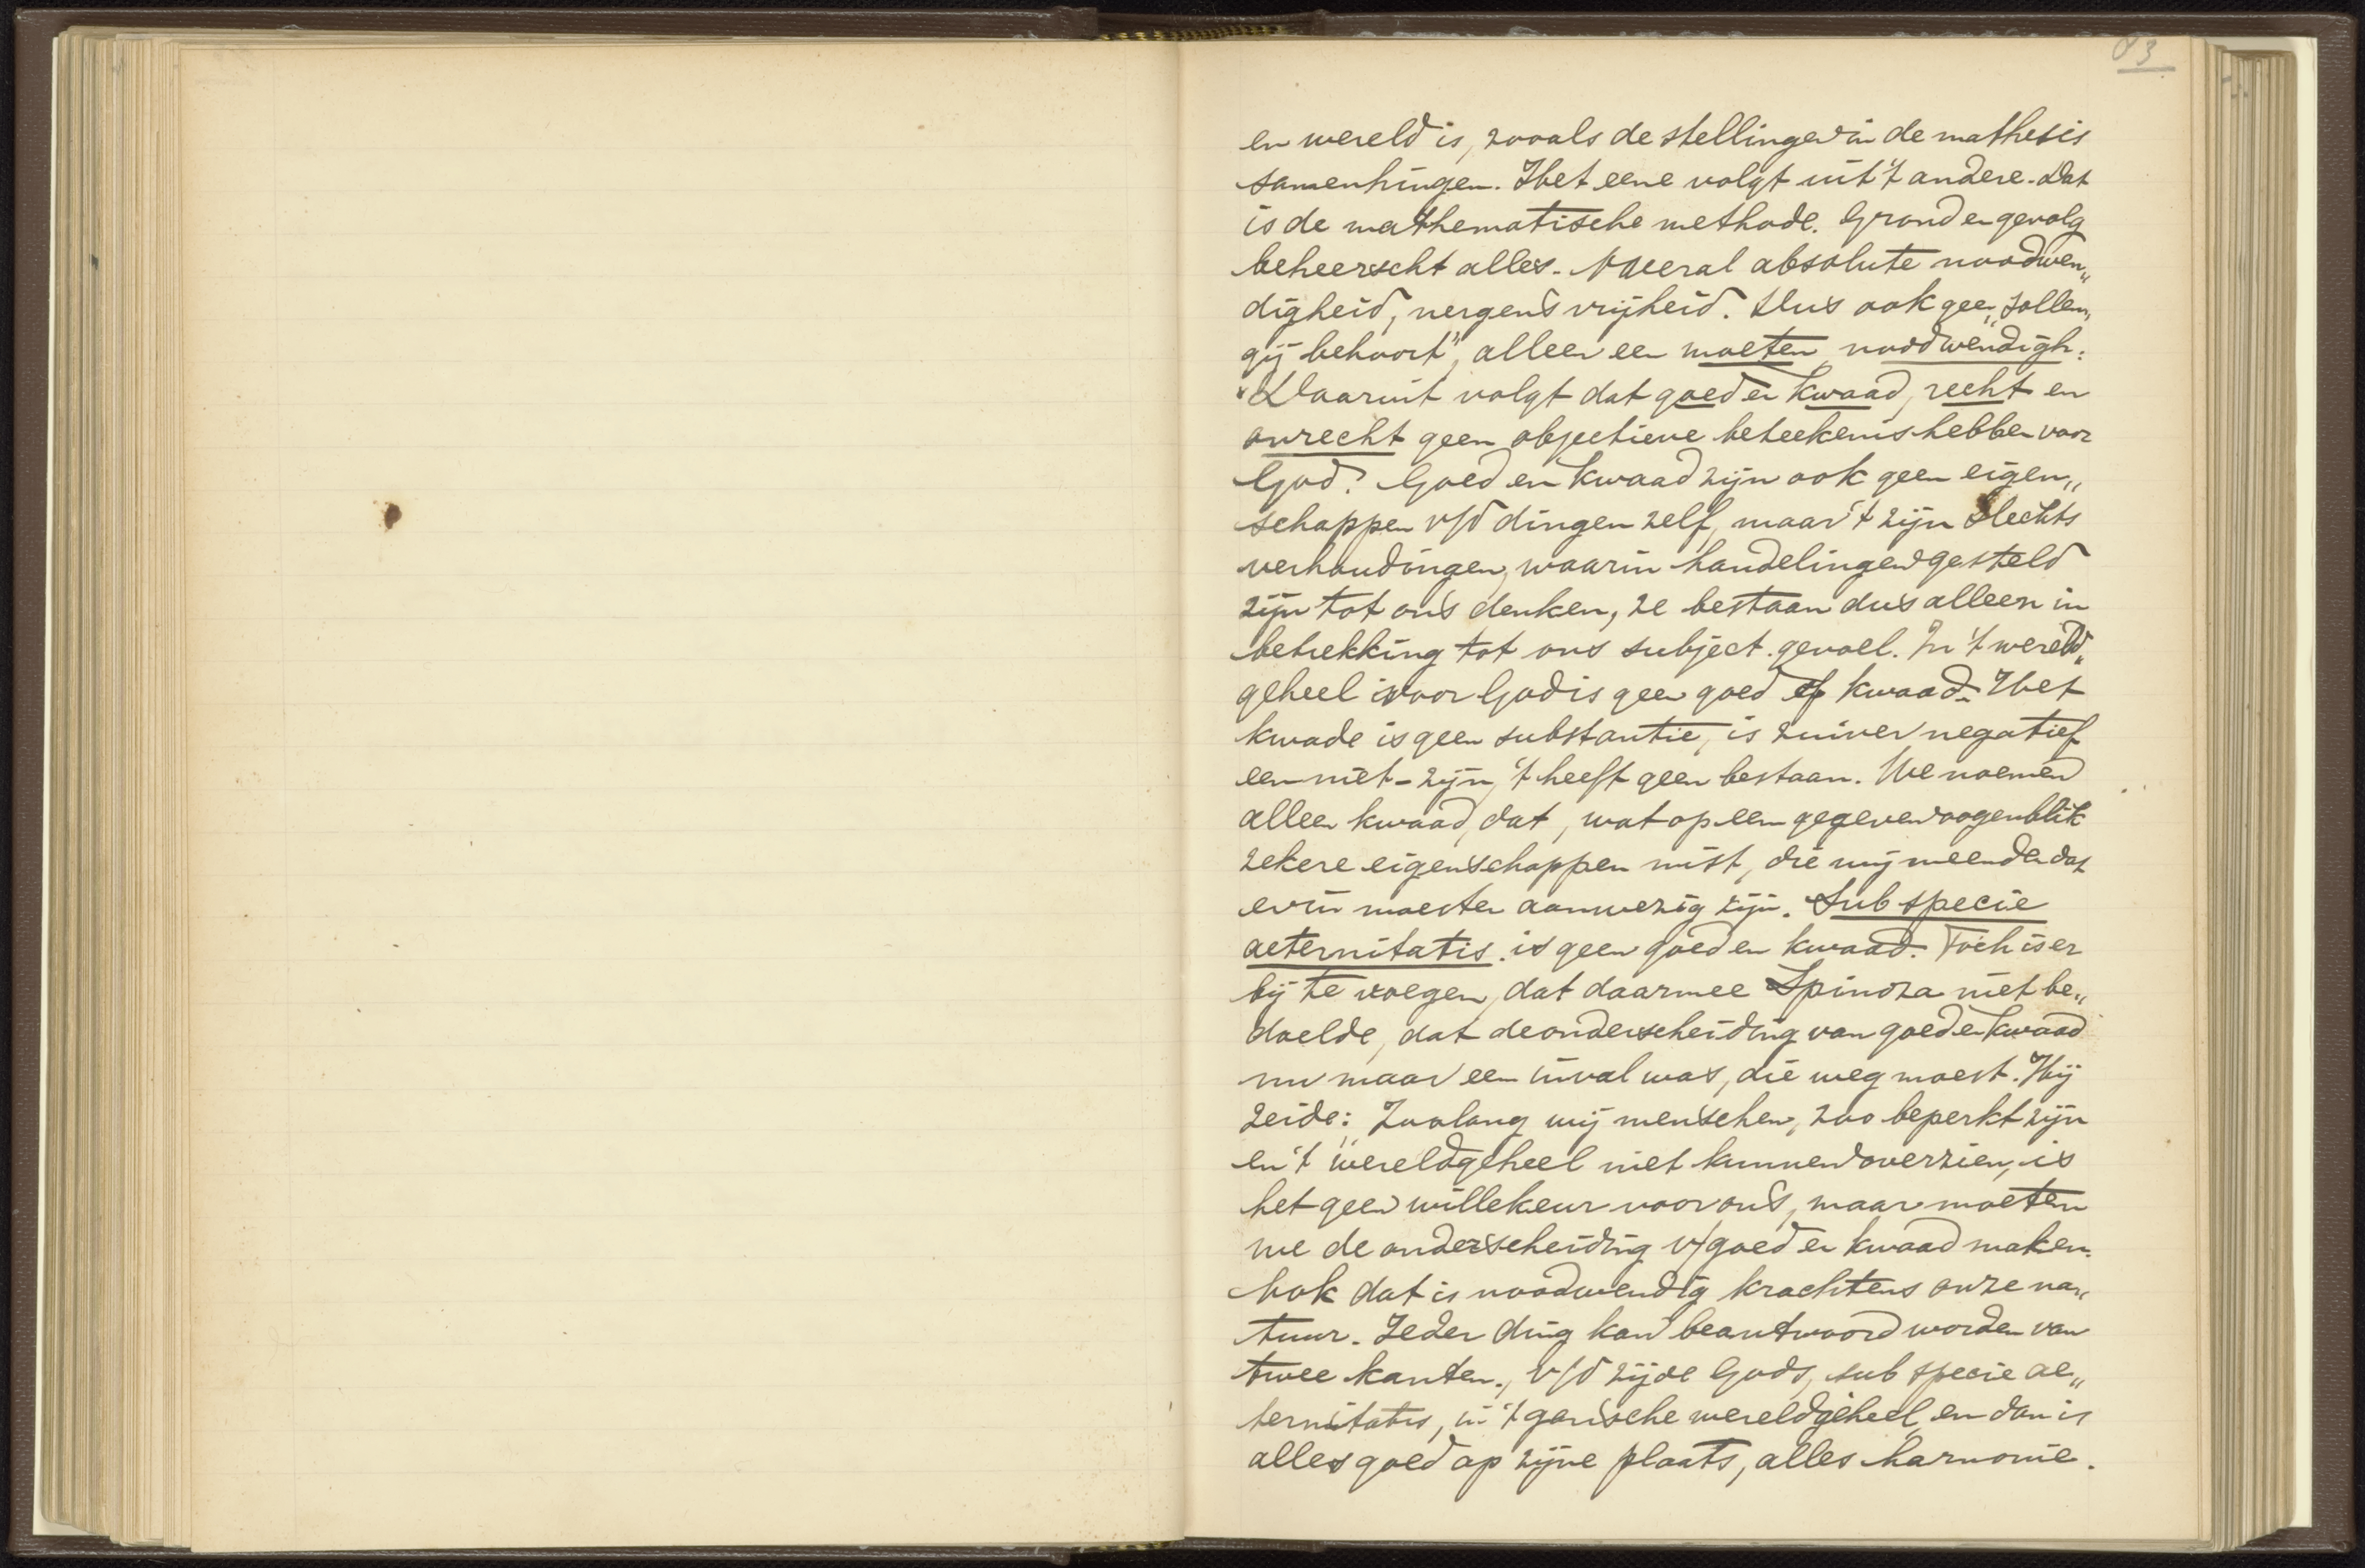 83
en wereld is, zooals de stellingen in de mathesis
samenhingen. Het eene volgt uit 't andere. Dat
is de mathematische methode. Grond en gevolg
beheerscht alles. Overal absolute noodwen„
digheid, nergens vrijheid. Dus ook geen „sollen,
gij behoort", alleen een moeten, noodwendigh:
Daaruit volgt dat goed en kwaad, recht en
onrecht geen objectieve beteekenis hebben voor
God. Goed en kwaad zijn ook geen eigen„
schappen v/d dingen zelf, maar 't zijn slechts
verhoudingen, waarin handelingen gesteld
zijn tot ons denken, ze bestaan dus alleen in
betrekking tot ons subject. gevoel. In 't wereld„
geheel voor God is geen goed of kwaad. Het
kwade is geen substantie, is zuiver negatief
een niet-zijn, 't heeft geen bestaan. We noemen
alleen kwaad, dat, wat op een gegeven oogenblik
zekere eigenschappen mist, die wij meenden dat
erin moesten aanwezig zijn. Sub specie
aeternitatis is geen goed en kwaad. Toch is er
bij te voegen, dat daarmee Spinoza niet be„
doelde, dat de onderscheiding van goed en kwaad
nu maar een inval was, die weg moest. Hij
zeide: Zoolang wij menschen, zoo beperkt zijn
en 't wereldgeheel niet kunnen overzien, is
het geen willekeur voor ons, maar moeten
we de onderscheiding v/goed en kwaad maken.
Ook dat is noodwendig krachtens onze na„
tuur. Ieder ding kan beantwoord worden van
twee kanten, v/d zijde Gods, sub specie ae„
ternitatis, in 't gansche wereldgeheel, en dan is
alles goed op zijne plaats, alles harmonie.